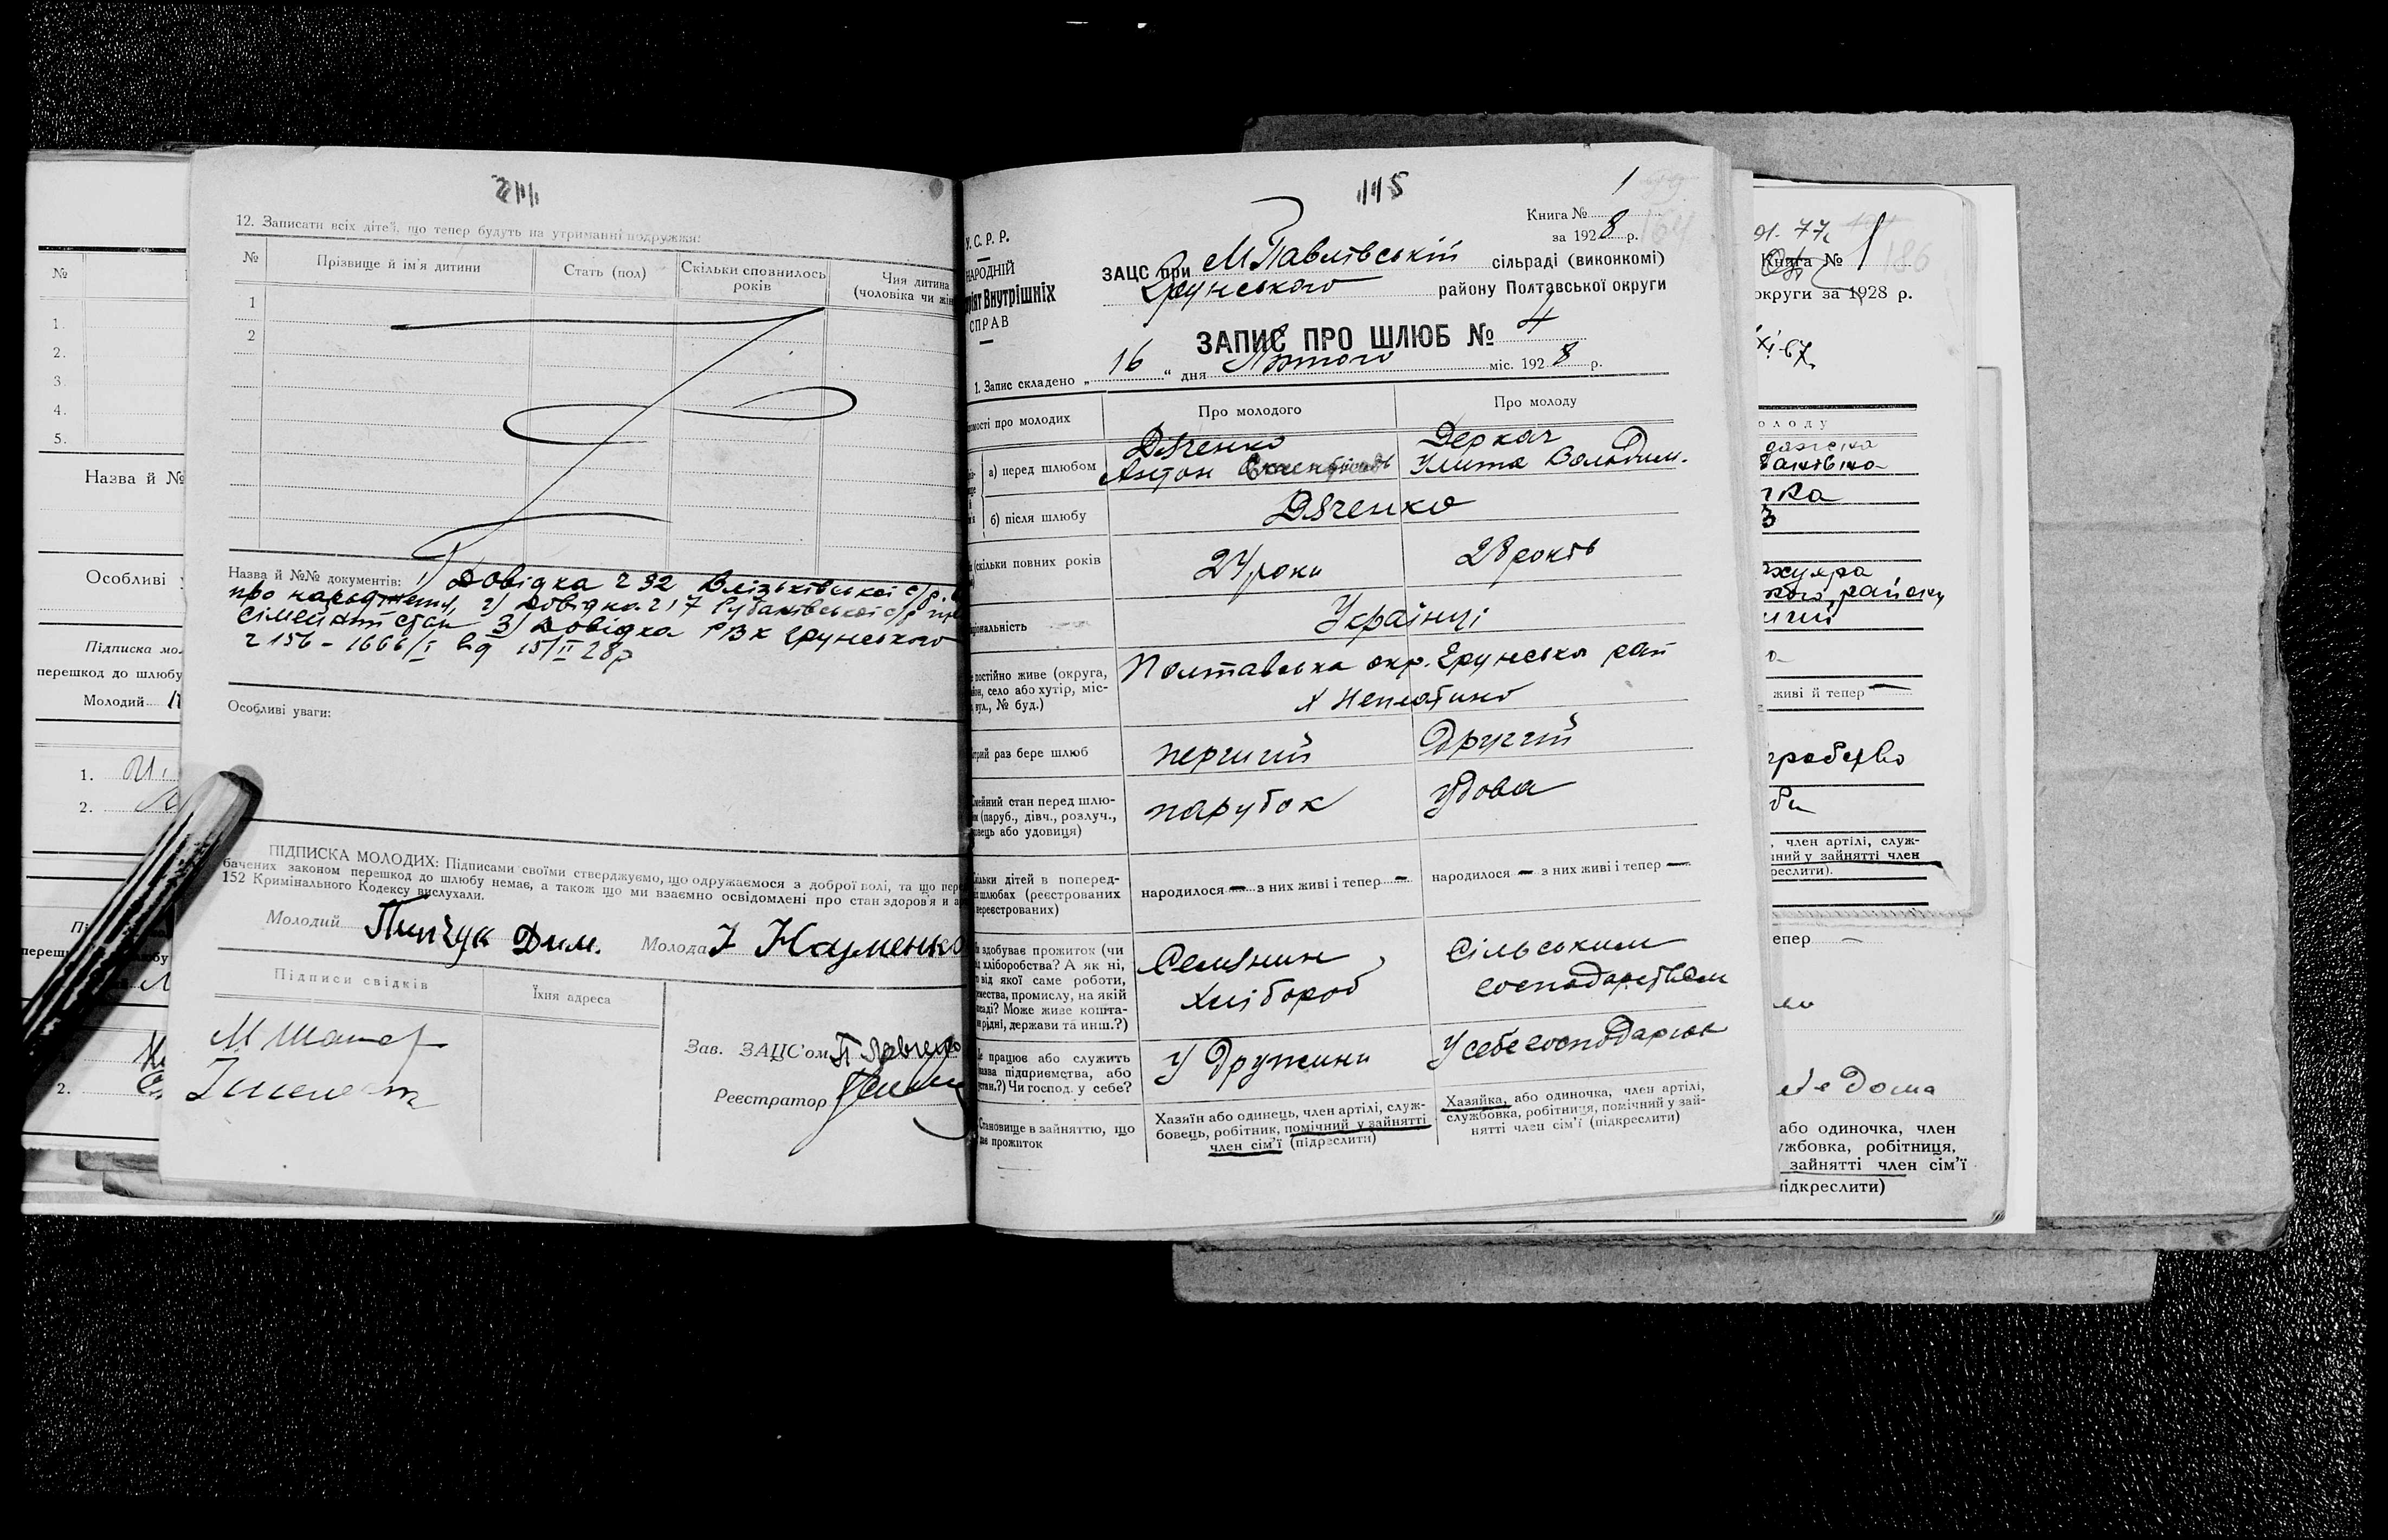 №
1.
2.
3.
4.
5.
Назва й №
Особливі
Підписка мо
перешкод до шлюбу
Молодий
1.
2.
2.
12. Записати всіх дітей, що тепер будуть на утриманні подружжя:
№
Прізвище й ім'я дитини
Стать (пол)
Скільки сповнилось
років
Чия дитина
(чоловіка чи жін
1
2
Назва й №№ документів: 1) Довідка
про народження, 2) Довідка
сімейний стан 3) Довідка РВК Грунського
156-1666/I від 15/II 28р
Особливі уваги:
ПІДПИСКА МОЛОДИХ: Підписами своїми стверджуємо, що одружаємося з доброї волі, та що пере
бачених законом перешкод до шлюбу немає, а також що ми взаємно освідомлені про стан здоров'я й
152 Кримінального Кодексу вислухали.
Молодий Дим. Молода Науменко
Підписи свідків
Їхня адреса
Зав. ЗАЦС'ом
Реєстратор
115
1
Книга №
164
за 1928 р.
У. С. Р. Р.
НАРОДНІЙ
ріят Внутрішніх
СПРАВ
ЗАЦС при М Павлівській сільраді (виконкомі)
Грунського району Полтавської округи
ЗАПИС ПРО ШЛЮБ № 4
1. Запис складено „16“ дня Лютого міс. 1928 р.
омості про молодих
Про молодого
Про молоду
а) перед шлюбом
Дяченко
Антон
Деркач
Улита Володим.
б) після шлюбу
Дяченко
скільки повних років
24 роки
28 років
ціональність
Українці
постійно живе (округа,
йон, село або хутір, міс-
вул., № буд.)
Полтавська окр. Грунська рай
х
трий раз бере шлюб
перший
Другий
мейний стан перед шлю-
м (паруб., дівч., розлуч.,
вець або удовиця)
парубок
Удова
ільки дітей в поперед-
шлюбах (реєстрованих
нереєстрованих)
народилося — з них живі і тепер —
народилося — з них живі і тепер —
здобуває прожиток (чи
хліборобства? А як ні,
о від якої саме роботи,
мества, промислу, на якій
саді? Може живе кошта-
рідні, держави та инш.?)
Селянин
хлібороб
Сільським
господарством
е працює або служить
назва підприємства, або
стан.?) Чи господ. у себе?
У Дружини
У себе господарює
Становище в зайняттю, що
ає прожиток
Хазяїн або одинець, член артілі, служ-
бовець, робітник, помічний у зайнятті
член сім'ї (підреслити)
Хазяйка, або одиночка, член артілі,
службовка, робітниця, помічний у зай-
нятті член сім'ї (підкреслити)
Книга № 1
186
округи за 1928 р.
олоду
живі й тепер —
, член артілі, служ-
ний у зайнятті член
реслити).
епер —
Дома
або одиночка, член
ужбовка, робітниця,
зайнятті член сім'ї
підкреслити)